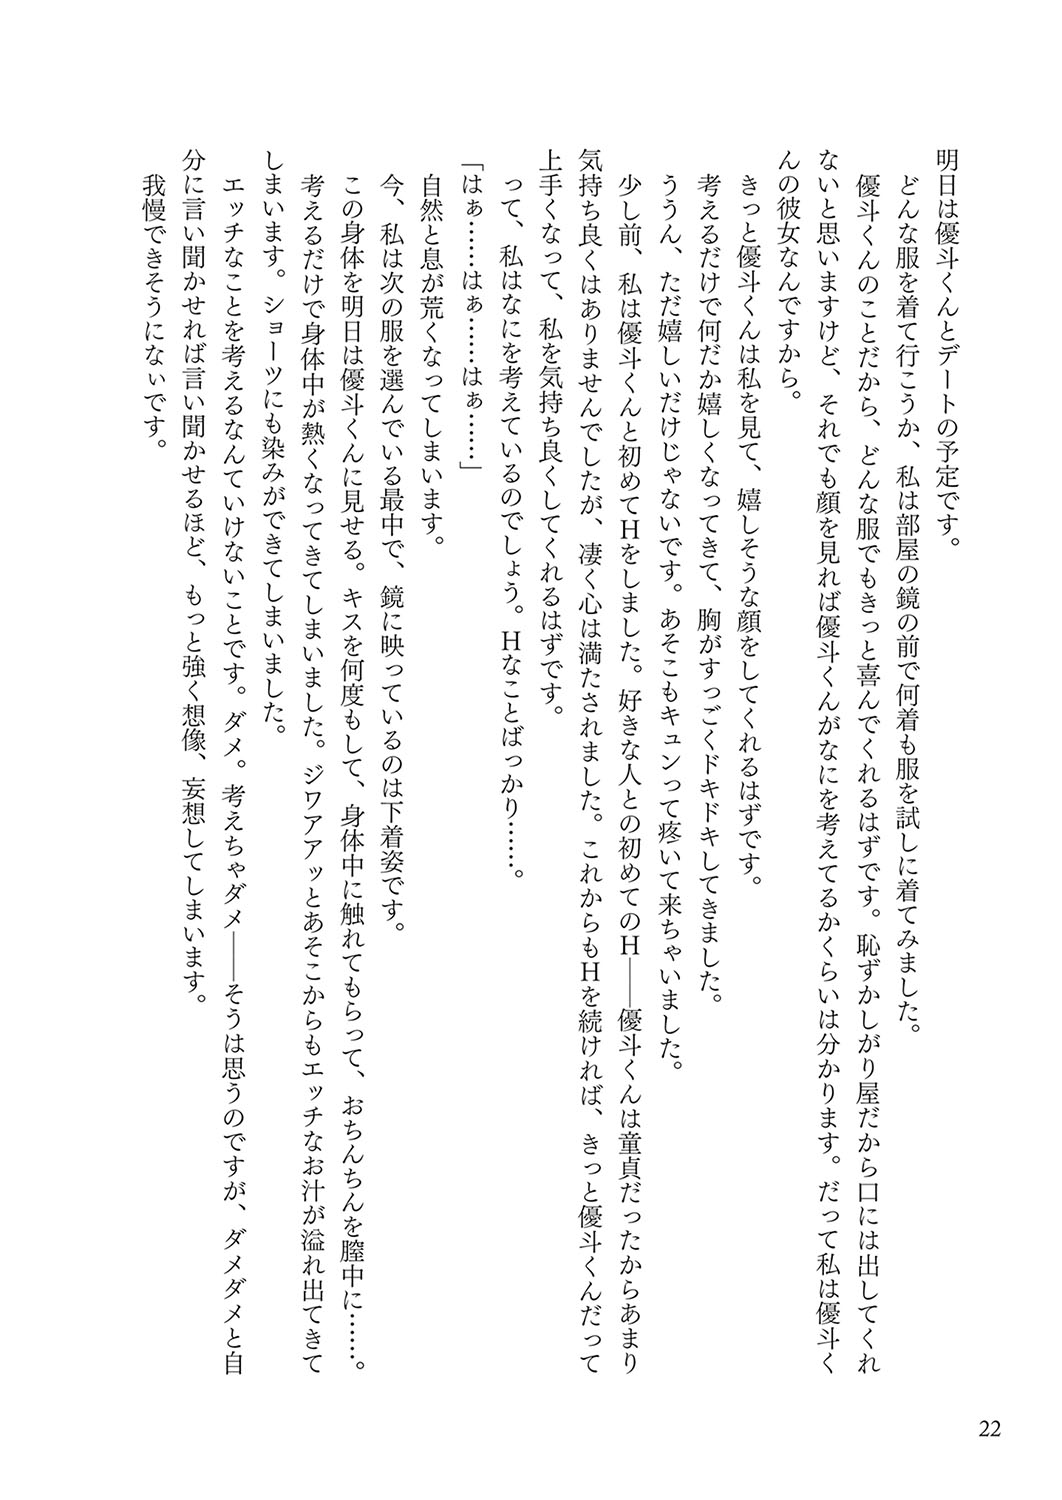 明日は優斗くんとデートの予定です。
どんな服を着て行こうか、私は部屋の鏡の前で何着も服を試しに着てみました。
優斗くんのことだから、どんな服でもきっと喜んでくれるはずです。恥ずかしがり屋だから口には出してくれ
ないと思いますけど、それでも顔を見れば優斗くんがなにを考えてるかくらいは分かります。だって私は優斗く
んの彼女なんですから。
きっと優斗くんは私を見て、嬉しそうな顔をしてくれるはずです。
考えるだけで何だか嬉しくなってきて、胸がすっごくドキドキしてきました。
ううん、ただ嬉しいだけじゃないです。あそこもキュンって疼いて来ちゃいました。
少し前、私は優斗くんと初めてHをしました。好きな人との初めてのH――優斗くんは童貞だったからあまり
気持ち良くはありませんでしたが、凄く心は満たされました。これからもHを続ければ、きっと優斗くんだって
上手くなって、私を気持ち良くしてくれるはずです。
って、私はなにを考えているのでしょう。Hなことばっかり……。
「はぁ……はぁ……はぁ……」
自然と息が荒くなってしまいます。
今、私は次の服を選んでいる最中で、鏡に映っているのは下着姿です。
この身体を明日は優斗くんに見せる。キスを何度もして、身体中に触れてもらって、おちんちんを膣中に……。
考えるだけで身体中が熱くなってきてしまいました。ジワアアッとあそこからもエッチなお汁が溢れ出てきて
しまいます。ショーツにも染みができてしまいました。
エッチなことを考えるなんていけないことです。ダメ。考えちゃダメ――そうは思うのですが、ダメダメと自
分に言い聞かせれば言い聞かせるほど、もっと強く想像、妄想してしまいます。
我慢できそうにないです。
22